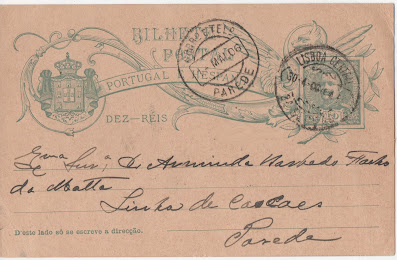 BILHETE POSTAL
PORTUGAL E HESPANHA
DEZ-RÉIS
PAREDE
LISBOA CENTRAL
Exma Snra D. Arminda Machado
da Matta
Linha de Cascaes
Parede
D'este lado só se escreve a direcção.